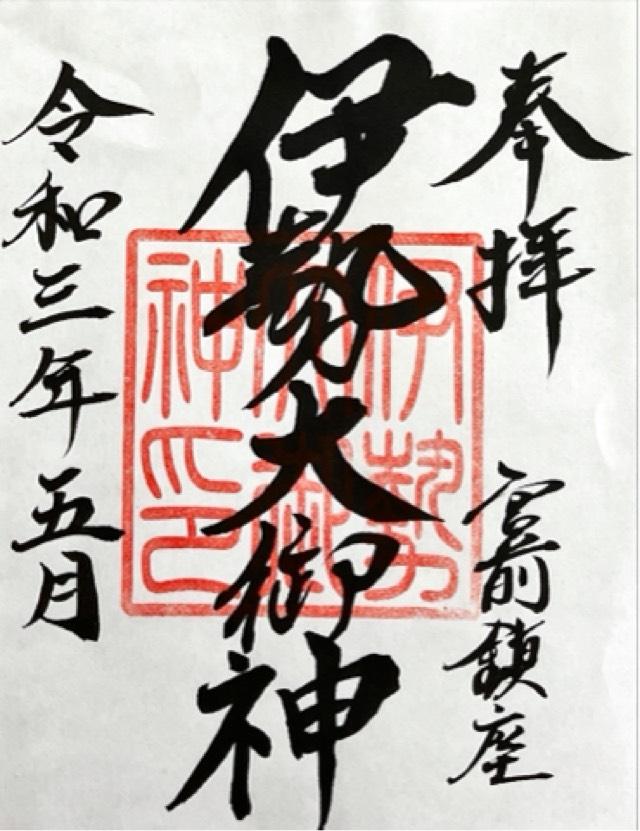 奉拝 宮前鎮座
伊勢大御神
令和三年五月
伊勢
大御
神印